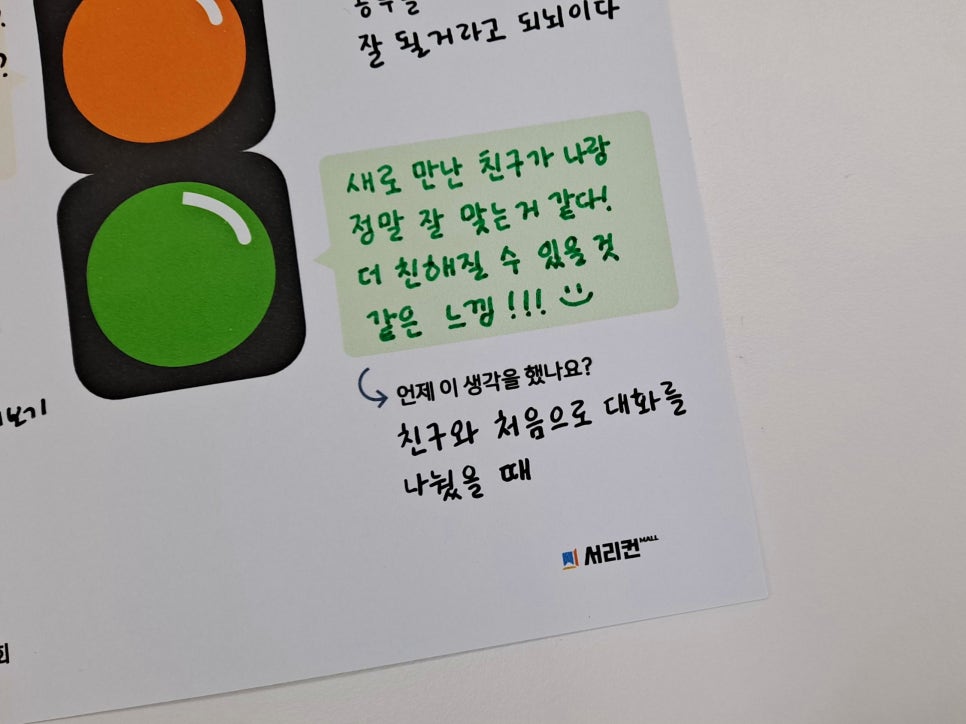 ?
잘 될거라고 되뇌이다
새로 만난 친구가 나랑
정말 잘 맞는거 같다!
더 친해질 수 있을 것
같은 느낌!!!
언제 이 생각을 했나요?
친구와 처음으로 대화를
나눴을 때
보기
서리컨 MALL
회